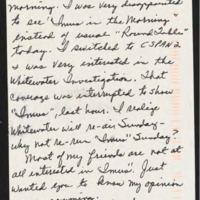 morning. I was very disappointed
to see "Imus in the Morning"
instead of usual "Round Table"
today. I switched to CSPAN 2
& was very interested in the
Whitewater Investigation. That
coverage was interrupted to show
"Imus" last hour. I realize
Whitewater will re-air Sunday-
why not re-run "Imus" Sunday?
Most of my friends are not at
all interested in "Imus". Just
wanted you to know my opinion